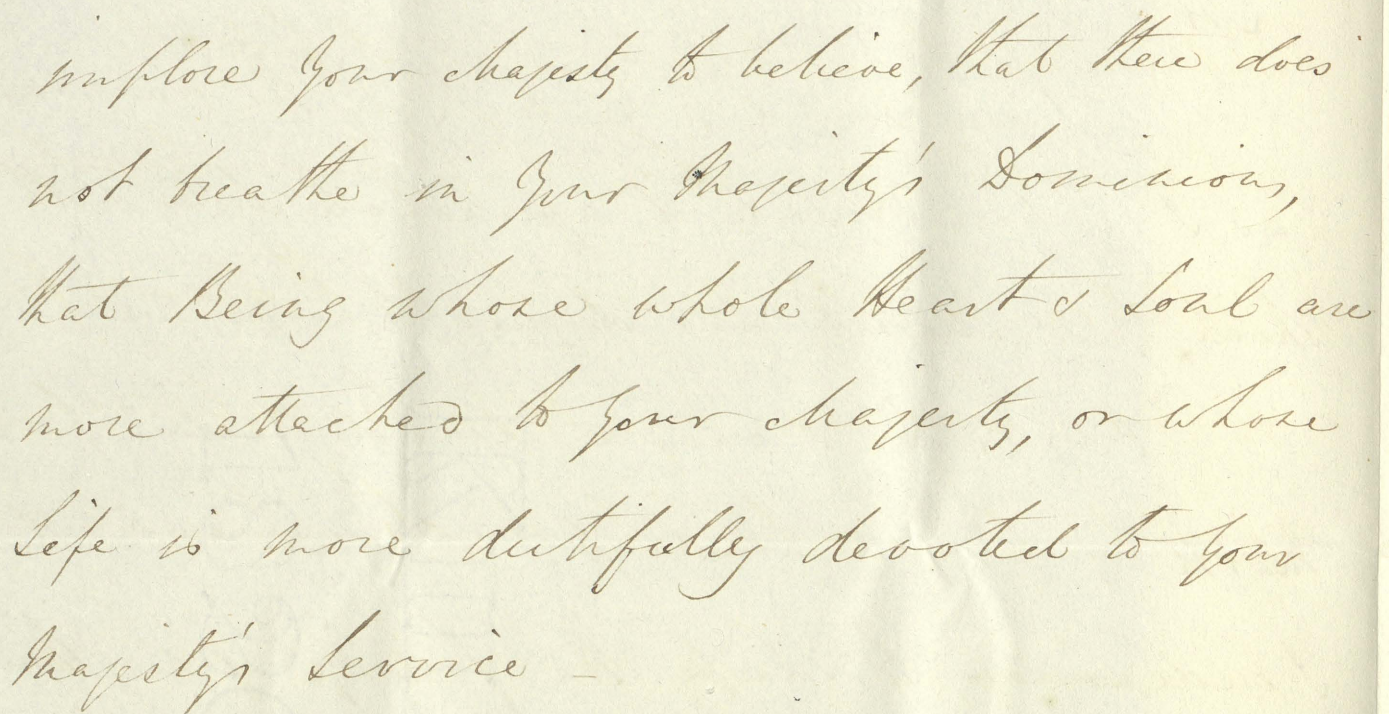 implore Your Majesty to believe, that there does
not breathe in Your Majesty's Dominions,
that Being whose whole Heart & Soul are
more attached to Your Majesty, or whose
Life is more dutifully devoted to Your
Majesty's Service –